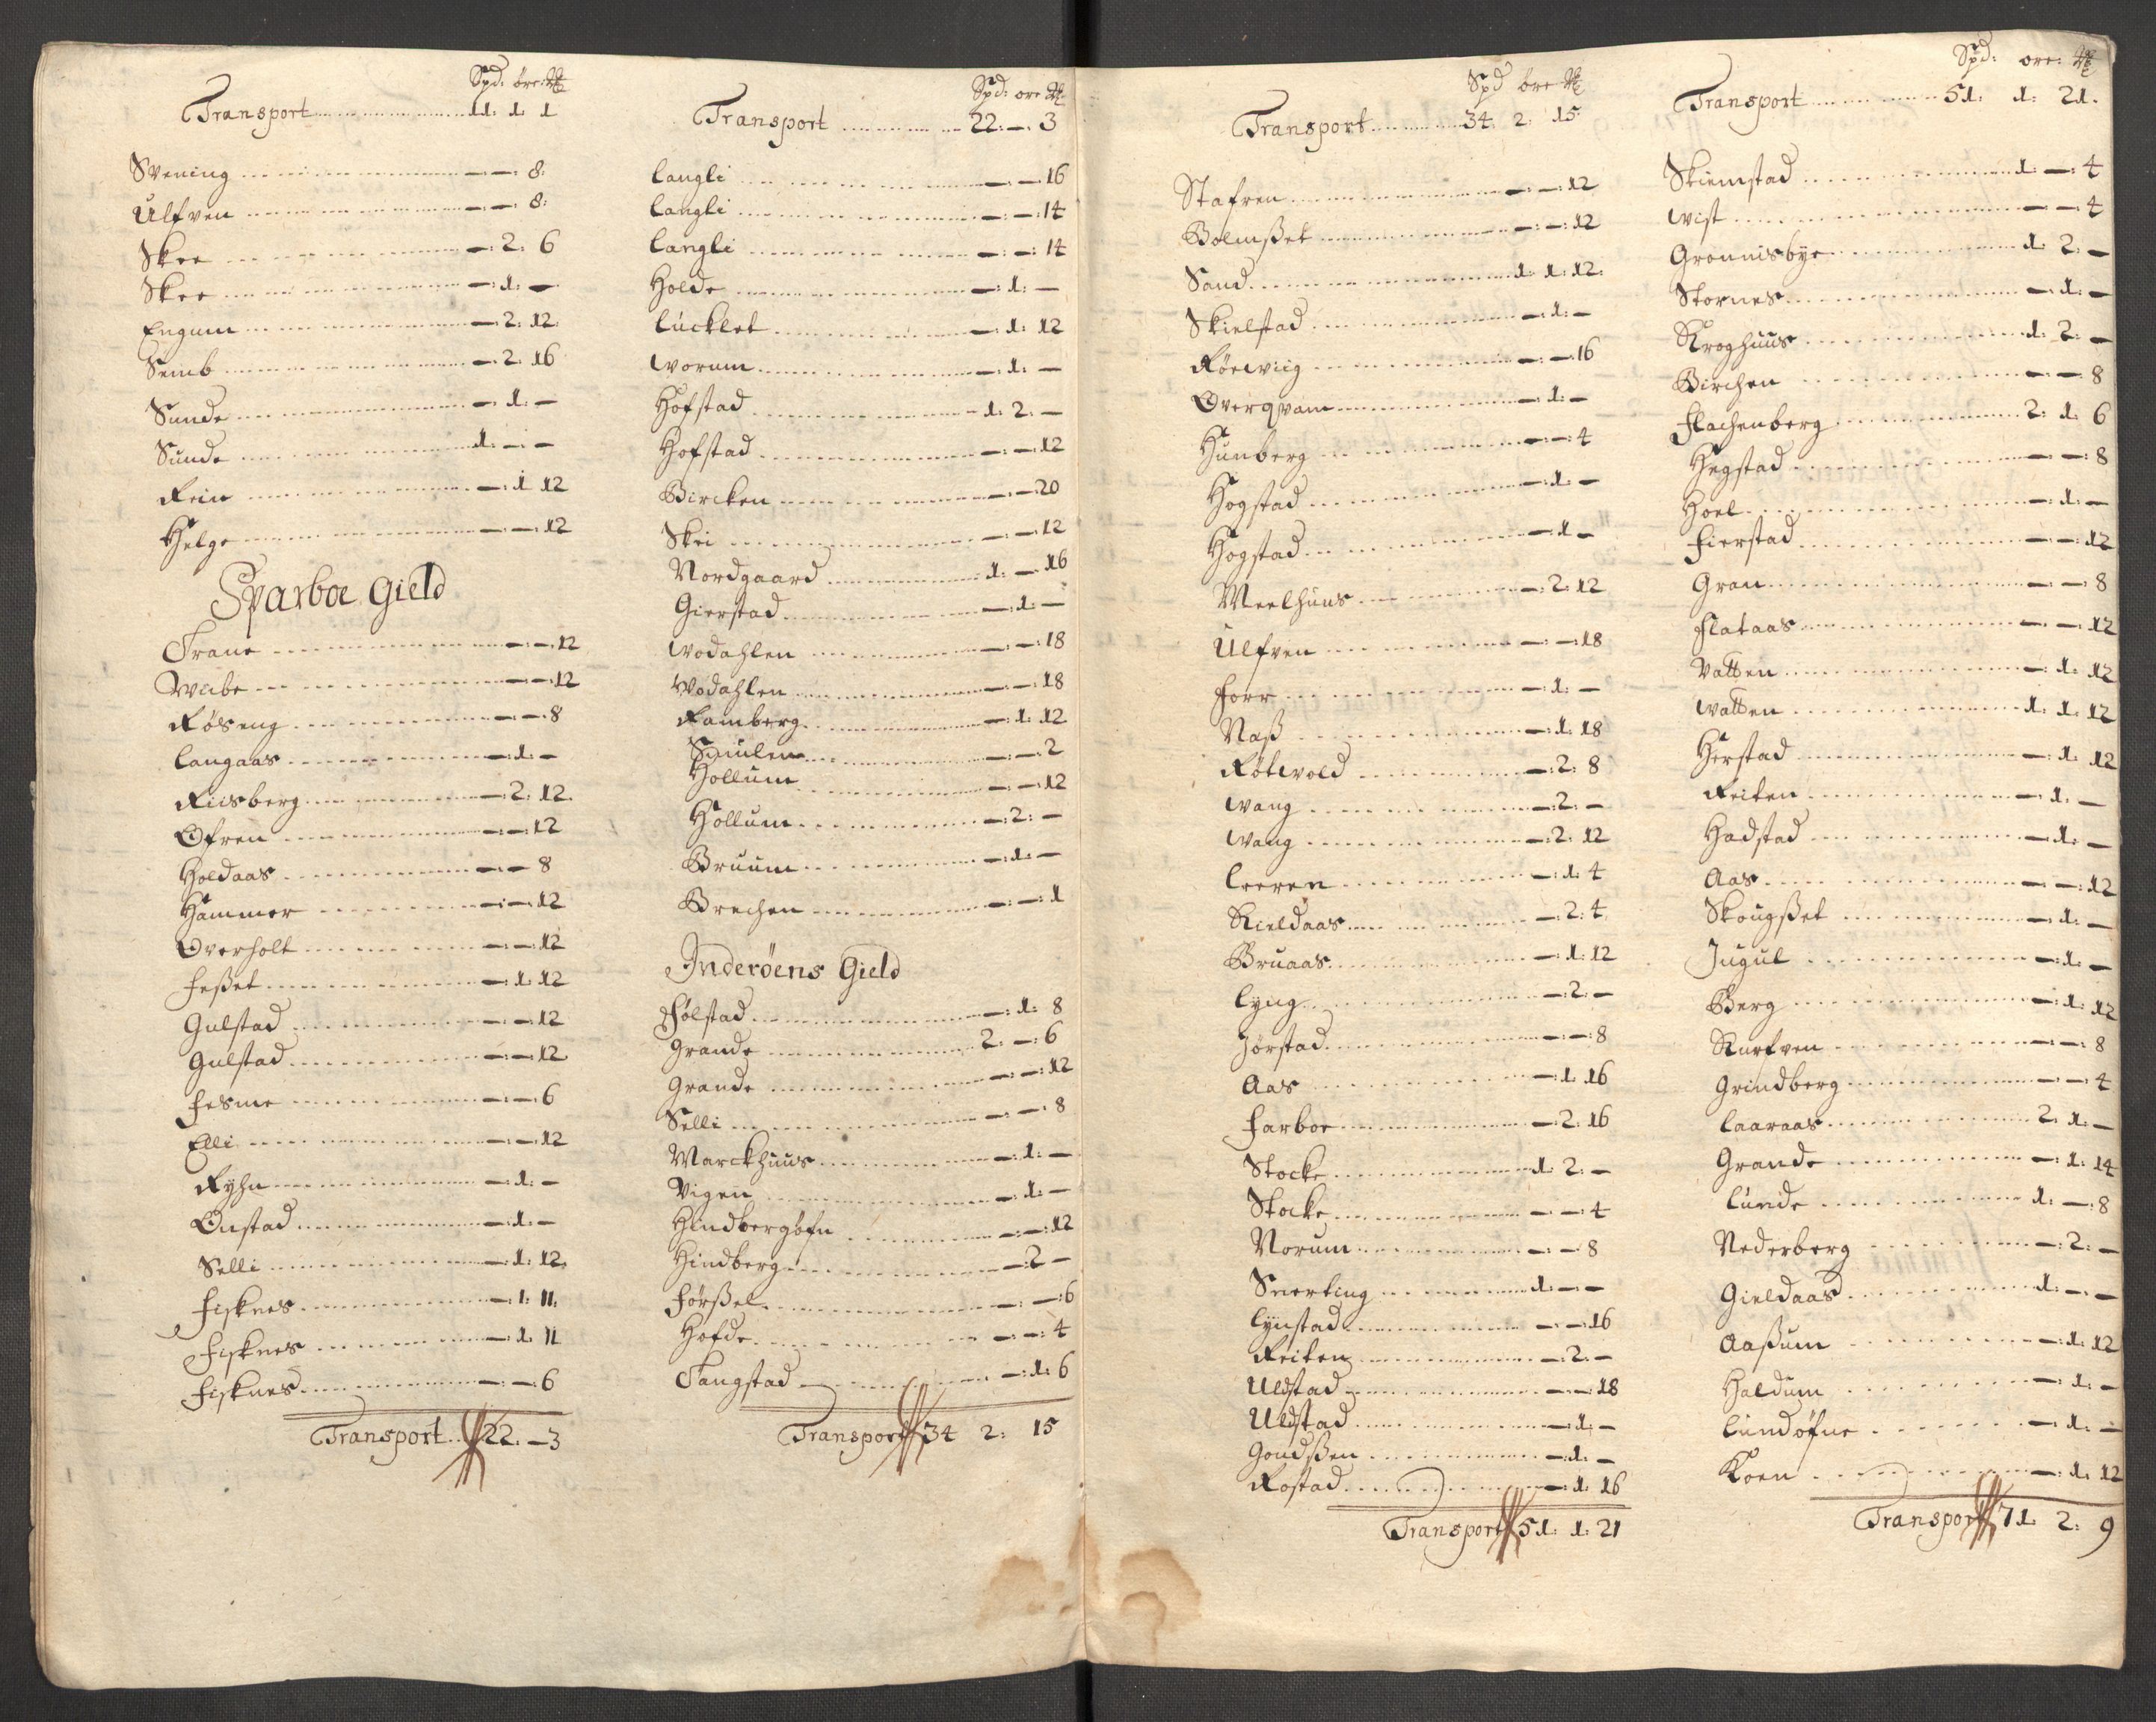 Spd: öre: ₰
Transport 11. 1. 1
Svening — — 8:
Ulfven — — 8:
Skee — 2: 6
Skee — 1: —
Engum — 2: 12
Semb — 2: 16
Sunde — 1: —
Sunde 1: — —
Rein — 1 12
Helge — — 12
Sparboe Gield
Trane — — 12
Wiibe — — 12
Røseng — — 8
Langaas — 1: —
Riisberg — 2: 12.
Ofren — — 12
Holdaas — — 8
Hammer — — 12
Overholt — — 12
Feßet — 1: 12
Gulstad — — 12
Gulstad — — 12.
Fesme — — 6
Elli — — 12
Ryhn — 1: —
Onstad — 1: —
Selli — 1: 12.
Fisknes — 1: 11.
Fisknes — 1. 11
Fisknes — — 6
Transport 22. — 3
Spd: öre ₰
Transport 22. — 3
Langli — — 16
Langli — — 14
Langli — — 14
Holde — 1: —
Lücklet — 1: 12
Worum — 1: —
Hofstad 1: 2: —
Hofstad — — 12
Bircken — — 20
Skei — — 12
Nordgaard 1: — 16
Gierstad — 1: —
Wodahlen — — 18
Wodahlen — — 18
Ramberg — 1: 12
— — 2
Hollum — — 12
Hollum — 2: —
Bruum — 1: —
Brechen — — 1
Inderöens Gield
Følstad — 1: 8
Grande 2: — 6
Grande — — 12
Selli — — 8
Marckhuus — 1: —
Vigen — 1: —
Hindbergöfn — — 12
Hindberg — 2 —
Førßel — — 6
Hofde — — 4
Tangstad — 1: 6
Transport 34 2: 15
Spd öre ₰
Transport 34 2: 15
Stafren — — 12
Bolmßet — — 12
Sand 1: 1: 12:
Skielstad — 1: —
Röewiig — — 16
Overqvam — 1: —
Hunberg — — 4
Hogstad — 1: —
Hogstad — 1 —
Meelhuus — 2: 12
Ulfven — — 18
Forr — 1: —
Naß — 1: 18
Røtwold — 2: 8
Wang — 2: —
Wang — 2: 12
Leeren — 1: 4
Kieldaas — 2: 4
Bruaas — 1: 12
Lyng — 2: —
Jørstad — — 8
Aas — 1 16
Farboe — 2: 16
Stocke 1: 2: —
Stocke — — 4
Norum — — 8
Snerting 1: — —
Lynstad — — 16
Reiten — 2: —
Uldstad — — 18
Uldstad — 1: —
Goudßen — 1: —
Rostad — 1: 16
Transport 51: 1: 21
Spd: öre: ₰
Transport 51: 1: 21.
Skiemstad 1: — 4
Wist — — 4
Gronnisbye 1: 2: —
Stornes — 1: —
Kroghuus 1: 2: —
Birchen — — 8
Flachenberg 2: 1: 6
Hegstad — — 8
Hoel — 1: —
Fierstad — — 12
Gran — — 8
Flataas — — 12
Vatten — 1: 12
Watten 1: 1: 12
Herstad — 1: 12
Reiten — 1: —
Hadstad — 1: —
Aas — — 12
Skougßet — 1: —
Jugul — 1: —
Berg — 1: 12
Kurfven — — 8
Grindberg — — 4
Laaraas 2: 1: —
Grande — 1: 14
Lunde 1: — 8
Nederberg — 2: —
Gieldaas 1: — —
Aaßum — 1: 12
Haldum — 1: —
Lundøfne — 1: —
Koen — 1: 12
Transport 71. 2: 9